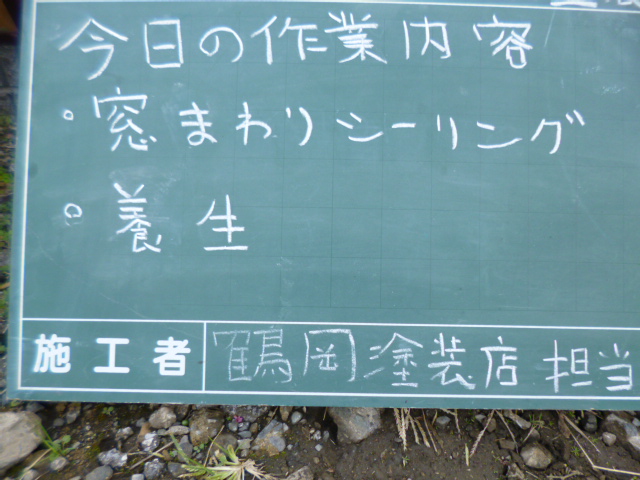 今日の作業内容
・窓まわりシーリング
・養生
施工者 鶴岡塗装店 担当